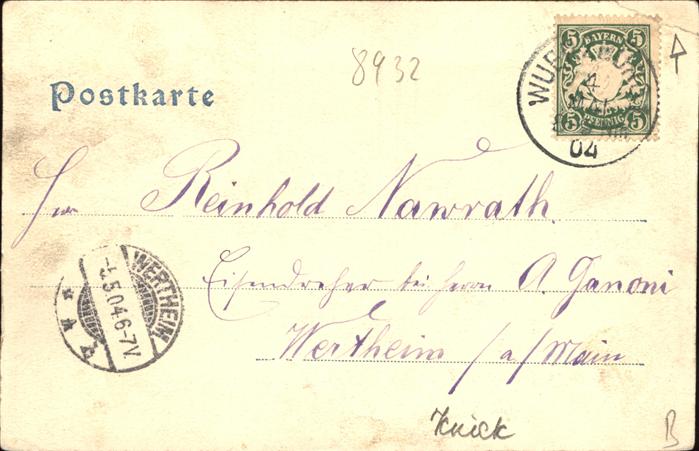 8932
Postkarte
5 BAYERN 5
5 PFENNIG 5
WUR
4
MAI
04
Herrn
Reinhold Nawrath.
Eisendreher bei Herrn A. Ganoni
Wertheim /a/Main
WERTHEIM
-4.5.04.6-7V.
Knick
B